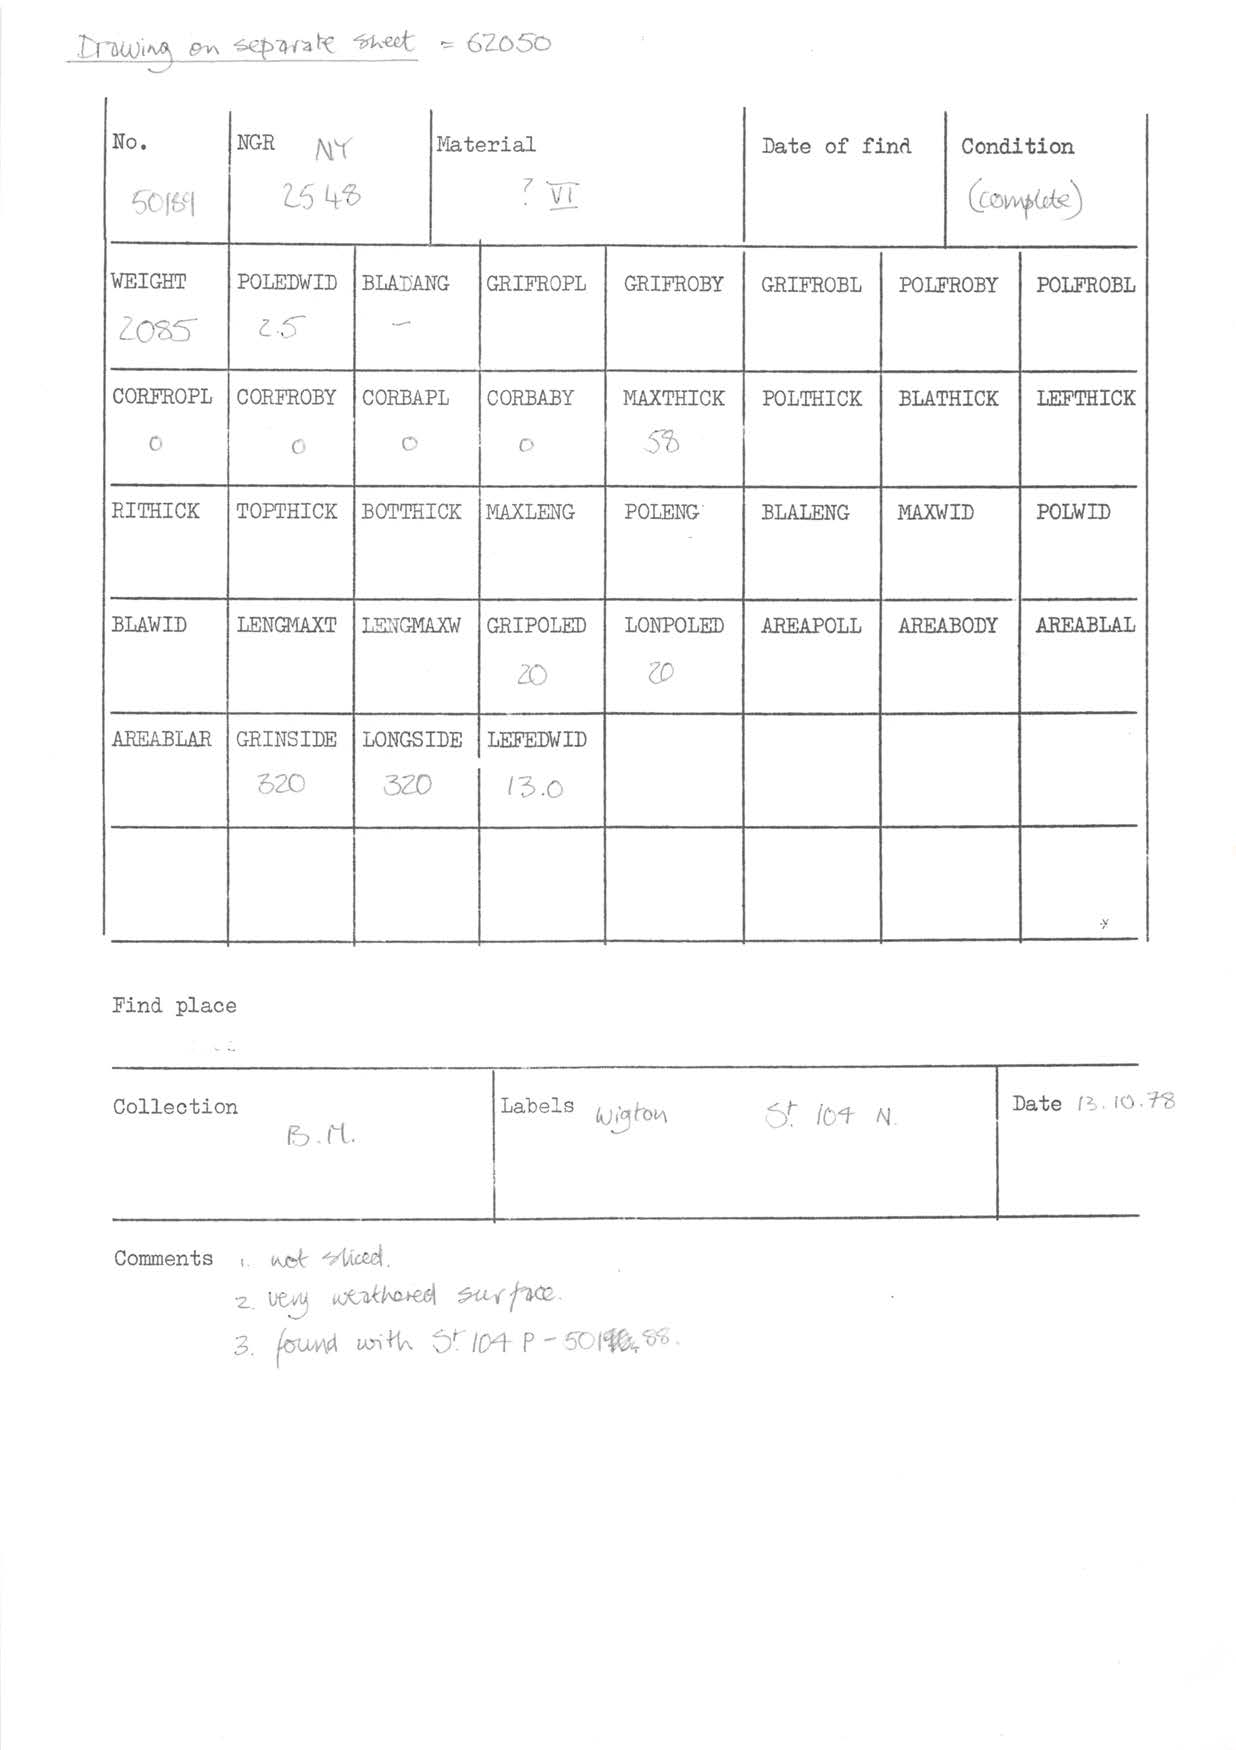 Drawing on separate sheet = 62050
No. NGR NY Material Date of find Condition
50189 2548 ? VI (complete)
WEIGHT POLEDWID BLADANG GRIFROPL GRIFROBY GRIFROBL POLFROBY POLFROBL
2085 2.5 —
CORFROPL CORFROBY CORBAPL CORBABY MAXTHICK POLTHICK BLATHICK LEFTHICK
0 0 0 0 58
RITHICK TOPTHICK BOTTHICK MAXLENG POLENG BLALENG MAXWID POLWID
BLAWID LENGMAXT LENGMAXW GRIPOLED LONPOLED AREAPOLL AREABODY AREABLAL
20 20
AREABLAR GRINSIDE LONGSIDE LEFEDWID
320 320 13.0
Find place
Collection Labels Wigton St. 104 N. Date 13.10.78
B.M.
Comments 1. not sliced.
2. very weathered surface.
3. found with St. 104 P - 501 88.